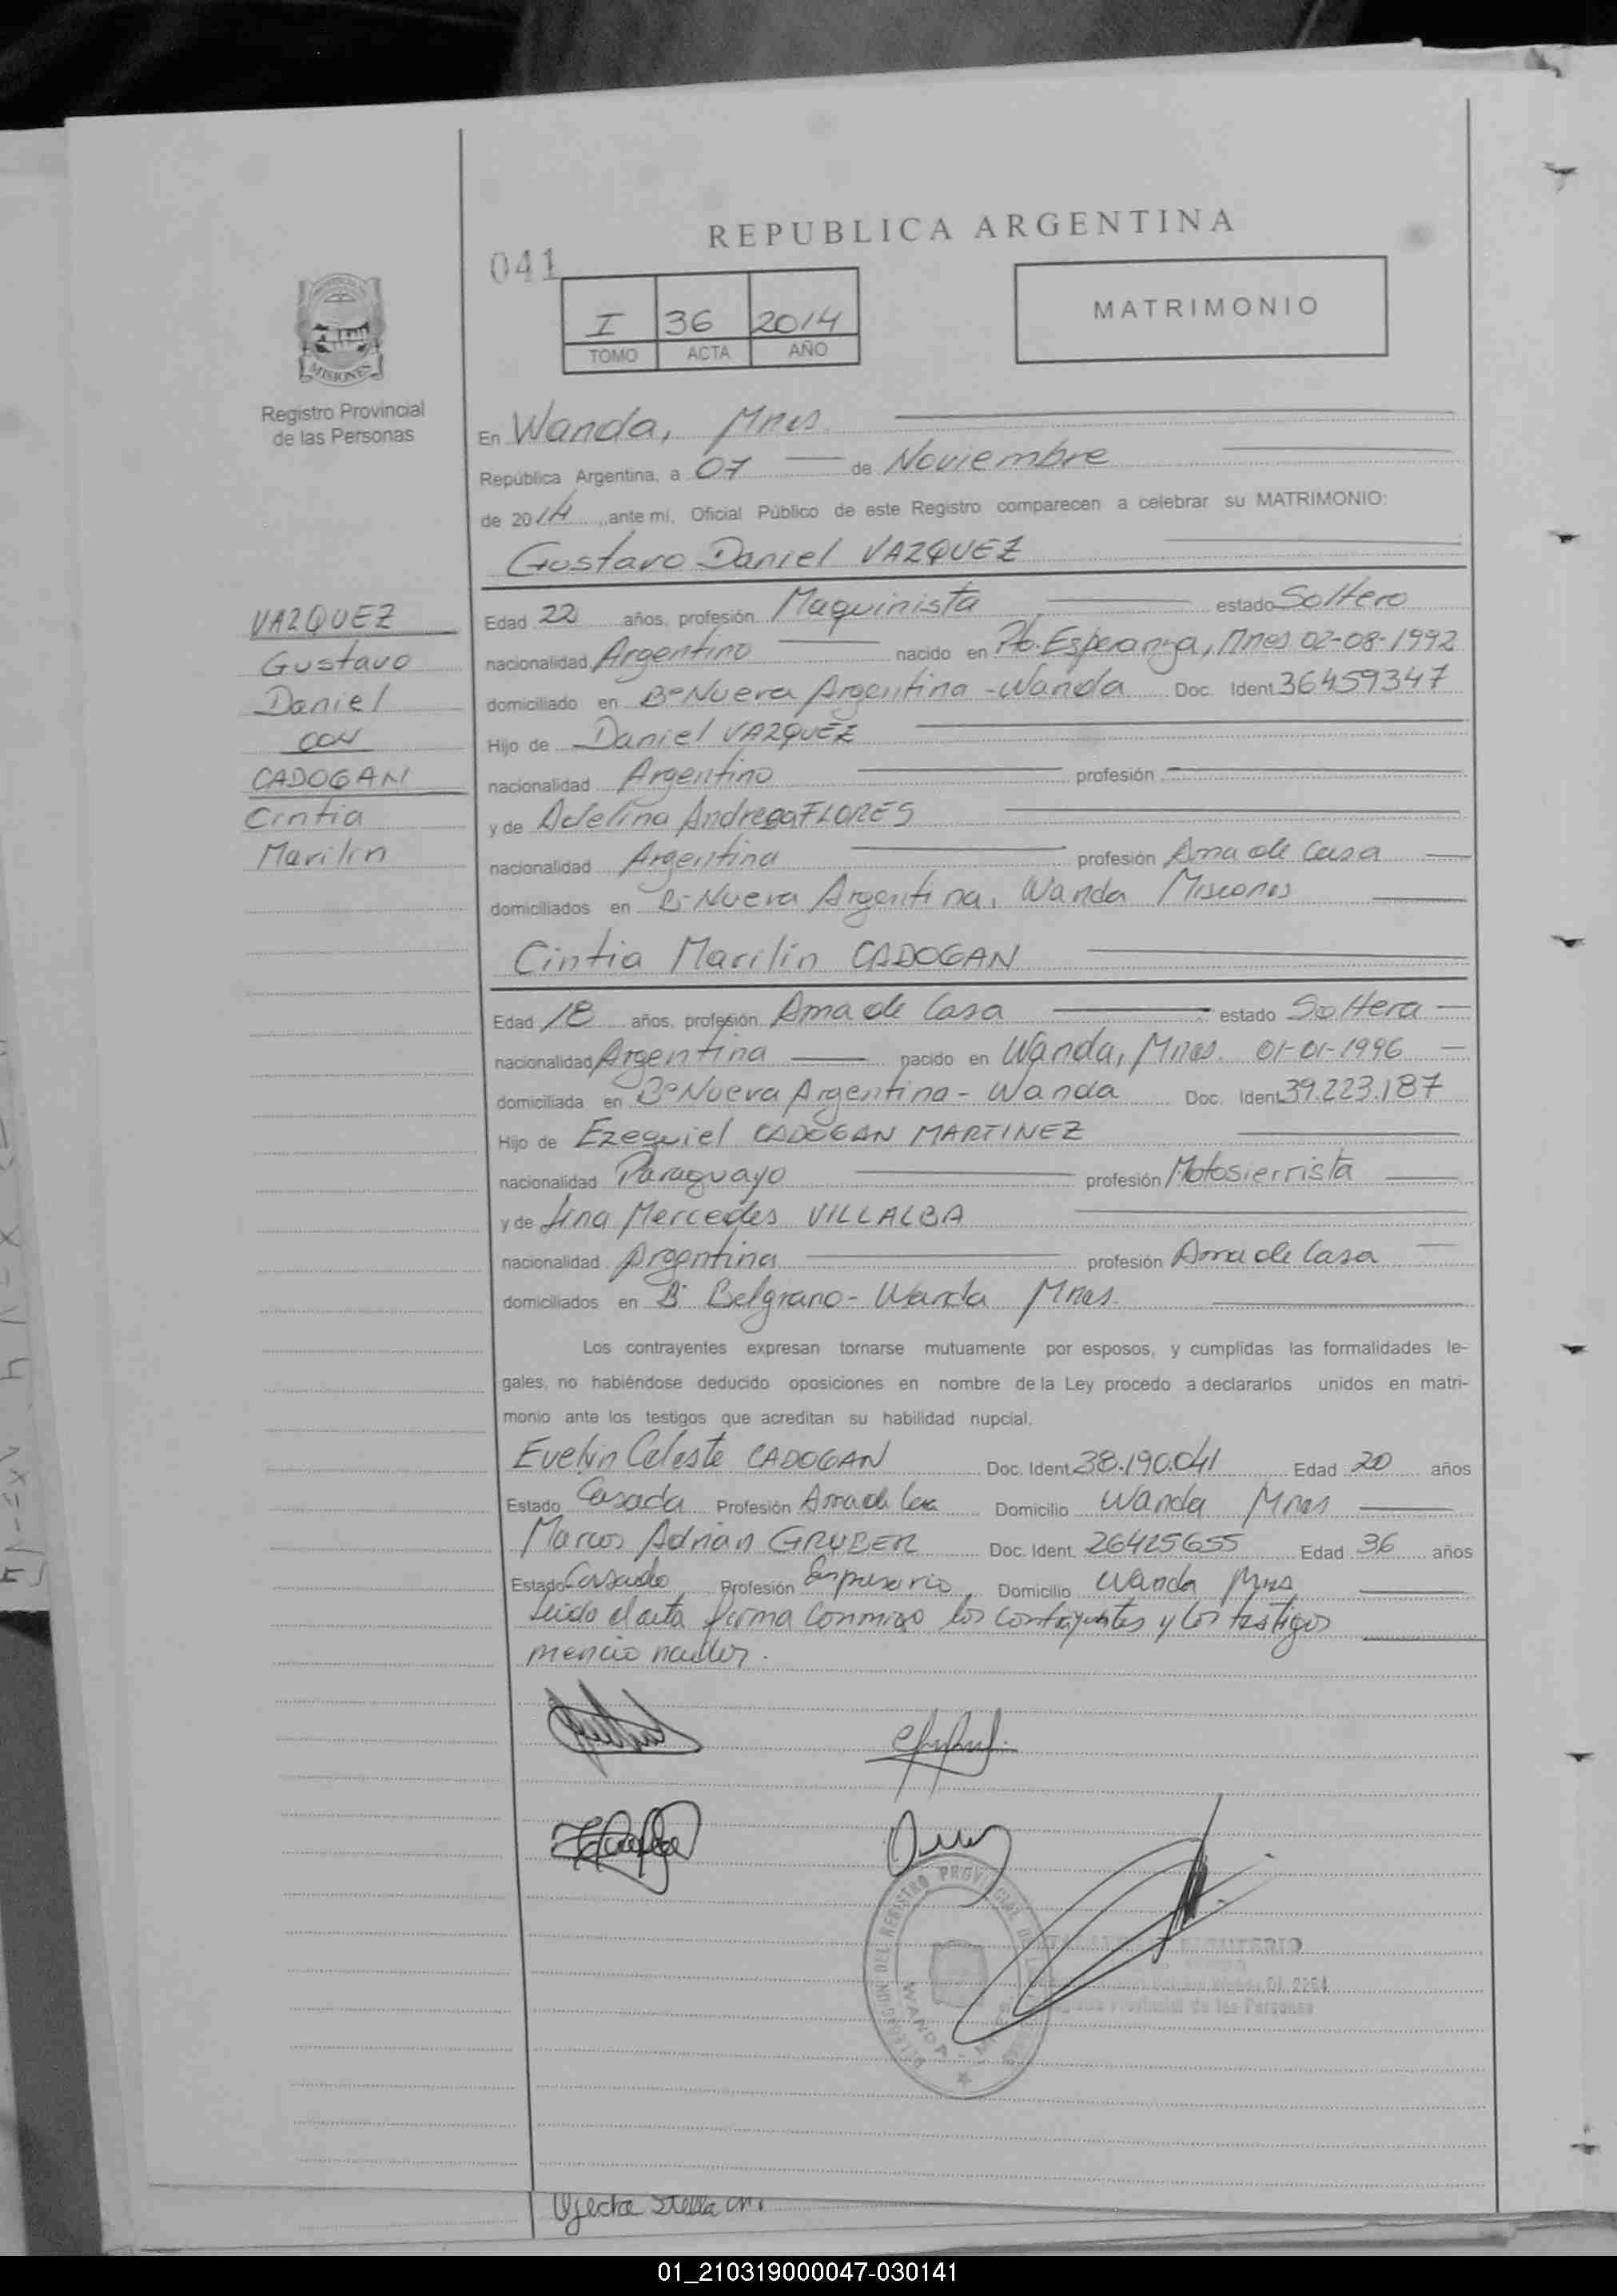 REPUBLICA ARGENTINA
041
I 36 2014
TOMO ACTA AÑO
MATRIMONIO
MISIONES
Registro Provincial
de las Personas
En Wanda, Mnes
República Argentina, a 07 de Noviembre
de 2014 ,ante mi, Oficial Público de este Registro comparecen a celebrar su MATRIMONIO:
Gustavo Daniel VAZQUEZ
VAZQUEZ
Gustavo
Daniel
CON
CADOGAN
Cintia
Marilin
Edad 22 años, profesión Maquinista estado Soltero
nacionalidad Argentino nacido en Pto. Esperanza, Mnes 02-08-1992
domiciliado en Bº Nueva Argentina - Wanda Doc. Ident. 36459347
Hijo de Daniel VAZQUEZ
nacionalidad Argentino profesión
y de Adelina FLORES
nacionalidad Argentina profesión Ama de Casa
domiciliados en Bº Nueva Argentina, Wanda Misiones
Cintia Marilin CADOGAN
Edad 18 años, profesión Ama de Casa estado Soltera
nacionalidad Argentina nacido en Wanda, Mnes. 01-01-1996
domiciliada en Bº Nueva Argentina - Wanda Doc. Ident. 39.223.187
Hijo de Ezequiel CADOGAN MARTINEZ
nacionalidad Paraguayo profesión Motosierrista
y de Lina Mercedes VILLALBA
nacionalidad Argentina profesión Ama de Casa
domiciliados en Bº Belgrano - Wanda Mnes.
Los contrayentes expresan tomarse mutuamente por esposos, y cumplidas las formalidades le-
gales, no habiéndose deducido oposiciones en nombre de la Ley procedo a declararlos unidos en matri-
monio ante los testigos que acreditan su habilidad nupcial.
Evelin Celeste CADOGAN Doc. Ident. 38.190.041 Edad 20 años
Estado Casada Profesión Ama de Casa Domicilio Wanda Mnes
Marcos Adrian GRUBER Doc. Ident. 26425655 Edad 36 años
Estado Casado Profesión Empresario Domicilio Wanda Mnes
Leido el acta firma conmigo los contrayentes y los testigos
mencionados.
DELEGACION DEL REGISTRO PROVINCIAL DE
WANDA
01 2264
Provincial de las Personas
Stella
01_210319000047-030141